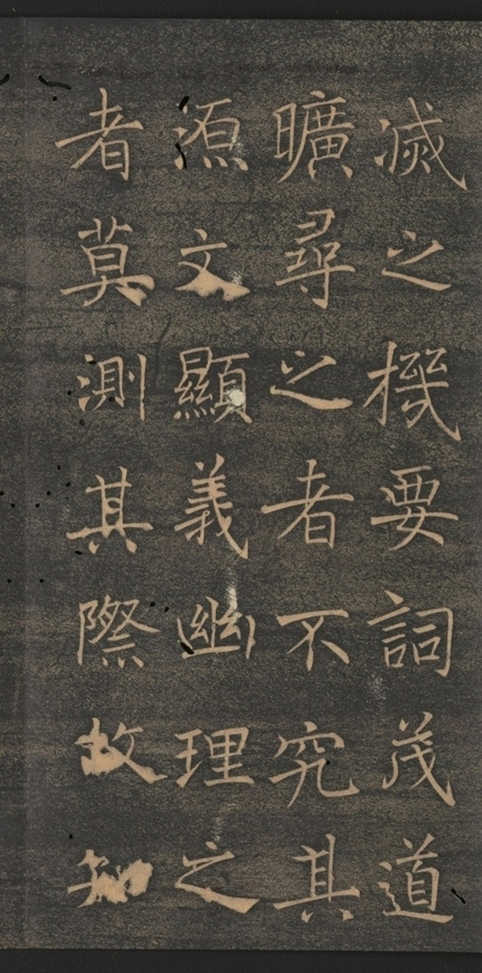 滅之機要詞茂道
曠尋之者不究其
源文顯義幽理之
者莫測其際故知